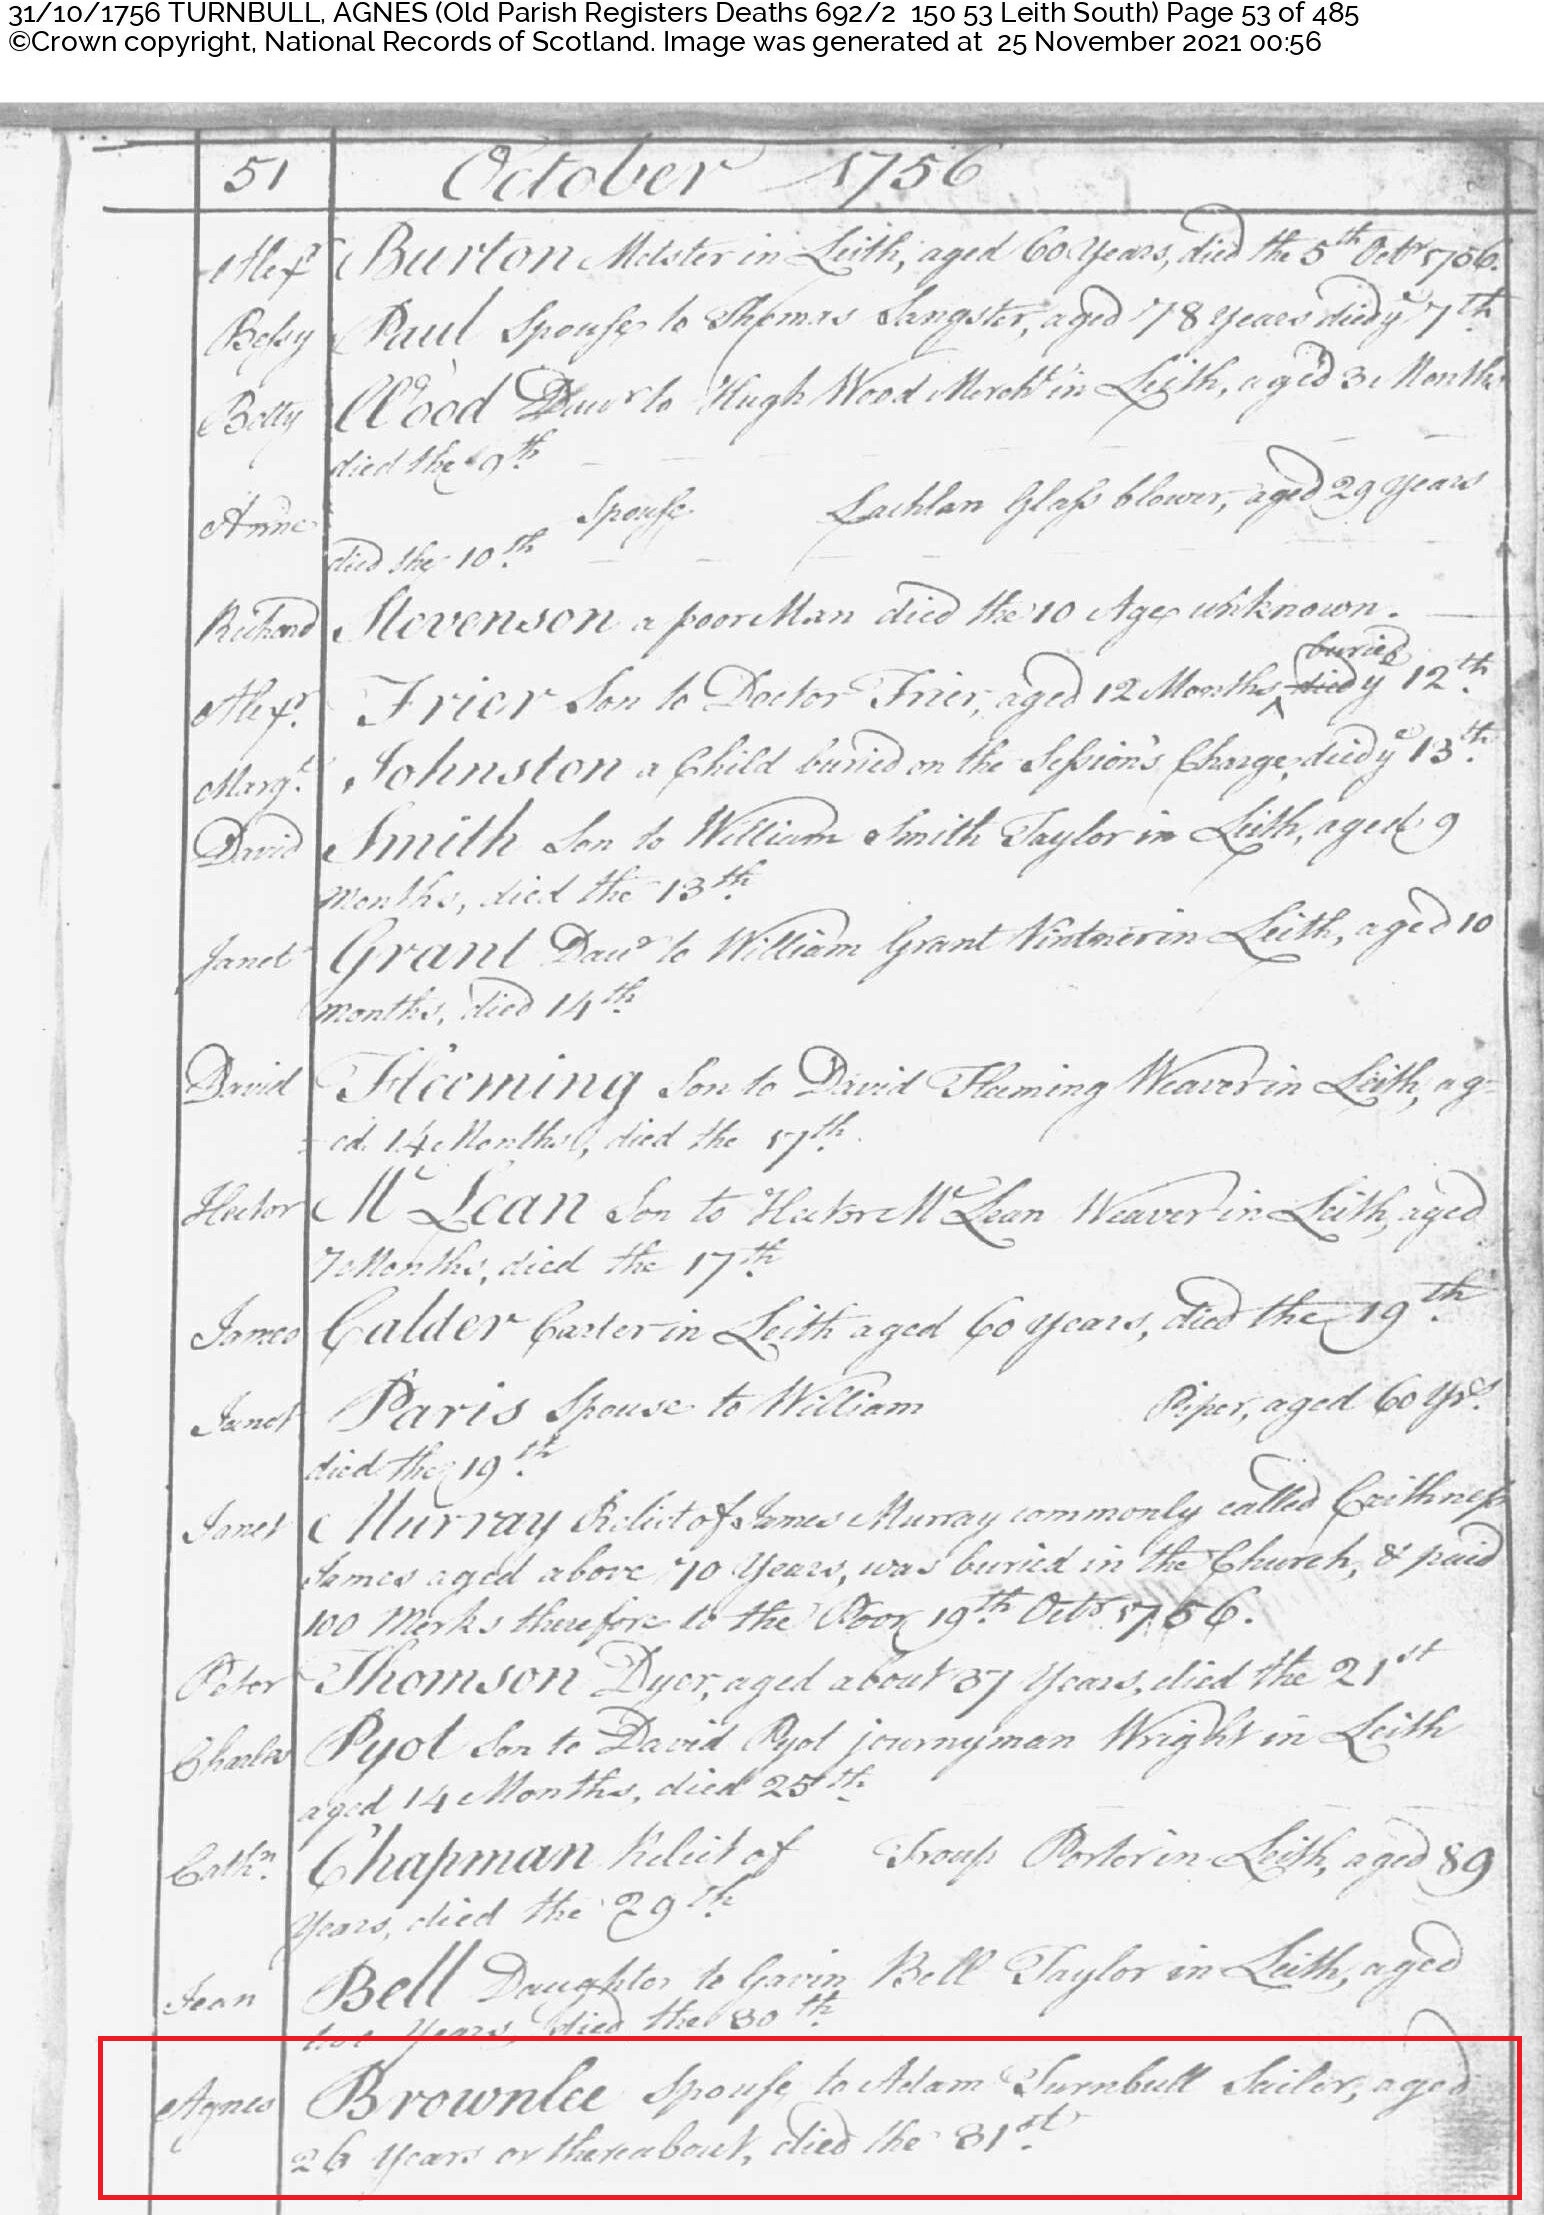 31/10/1756 TURNBULL, AGNES (Old Parish Registers Deaths 692/2 150 53 Leith South) Page 53 of 485
©Crown copyright, National Records of Scotland. Image was generated at 25 November 2021 00:56
51 October 1756
Alexr Burton Melster in Leith, aged 60 Years, died the 5th Octr 1756.
Bessy Paul Spouse to Thomas Sangster, aged 78 Years died ye 7th
Betty Wood Dawr to Hugh Wood Mercht in Leith, aged 3 Months
died the 9th
Anne Spouse Lachlan Glass blower, aged 29 Years
died the 10th
Richard Stevenson a poor Man died the 10 Age unknown.
buried
Alexr. Frier Son to Doctor Frier, aged 12 Months, died y 12th.
Margt. Johnston a Child buried on the Session's Charge, died ye 13th.
David Smith Son to William Smith Taylor in Leith, aged 9
Months, died the 13th.
Janet Grant Dawr to William Grant Vintner in Leith, aged 10
months, died 14th.
David Fleeming Son to David Fleeming Weaver in Leith, ag=
=ed 14 Months, died the 17th.
Hector Mc Lean Son to Hector Mc Lean Weaver in Leith, aged
7 Months, died the 17th.
James Calder Carter in Leith aged 60 Years, died the 19th.
Janet Paris Spouse to William Piper, aged 60 Yrs.
died the 19th.
Janet Murray Relict of James Murray commonly called Caithness
James aged above 70 Years, was buried in the Church, & paid
100 Merks therefore to the Poor 19th Octr 1756.
Peter Thomson Dyer, aged about 37 Years, died the 21st
Charles Pyot Son to David Pyot journyman Wright in Leith
aged 14 Months, died 25th.
Cathn. Chapman Relict of Troup Porter in Leith, aged 89
Years, died the 29th.
Jean Bell Daughter to Gavin Bell Taylor in Leith, aged
two Years, died the 30th.
Agnes Brownlee Spouse to Adam Turnbull Sailor, aged
26 Years or thereabout, died the 31st.